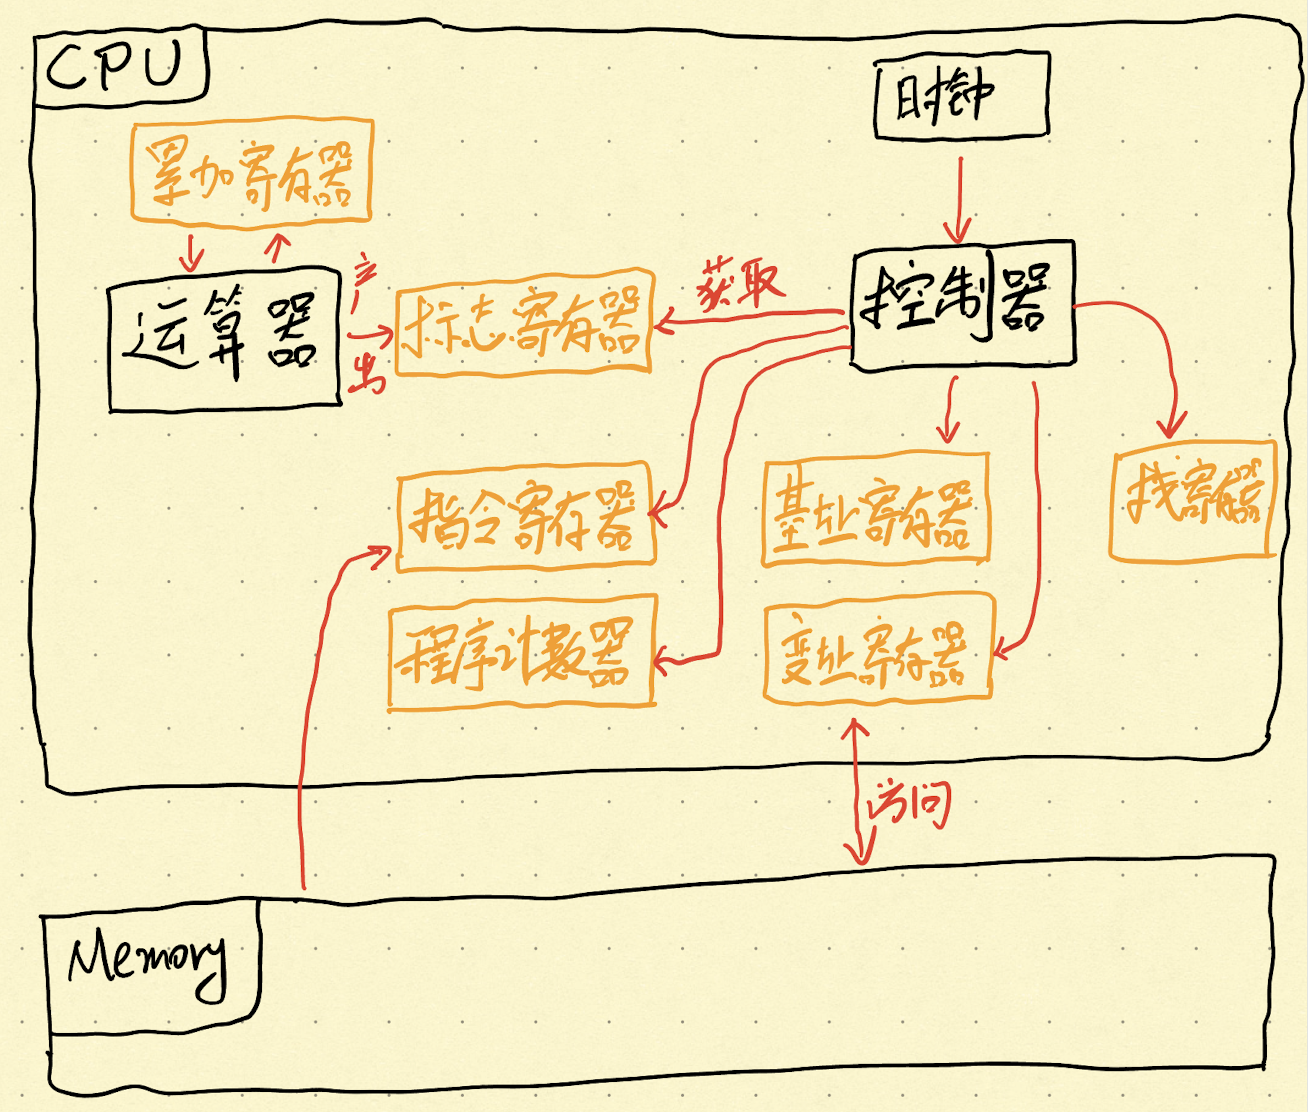 CPU
时钟
累加寄存器
运算器
产出
标志寄存器
获取
控制器
指令寄存器
基址寄存器
栈寄存器
程序计数器
变址寄存器
访问
Memory